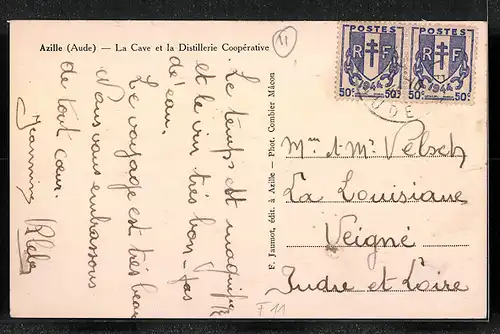 Azille (Aude) — La Cave et la Distillerie Coopérative
11
POSTES
RF
1944
50c 50c
POSTES
RF
1944
50c 50c
AUDE
Le temps est magnifique
et le vin très bon - pas
d'eau.
Le voyage est très beau
Nous vous embrassons
de tout cœur.
Jeannine
F. Jaumot, édit. à Azille — Phot. Combier Mâcon
Mme et Mr Velsch
La Louisiane
Veigné
Indre et Loire
F 11